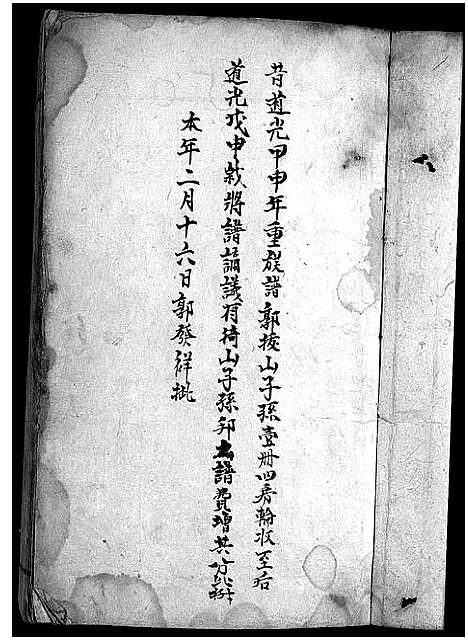 昔道光甲申年重族譜郭挍山子孫壹册四房輪收至后
道光戊申歲將譜譄議有掎山子孫邜出譜費增共
本年二月十六日郭發祥批